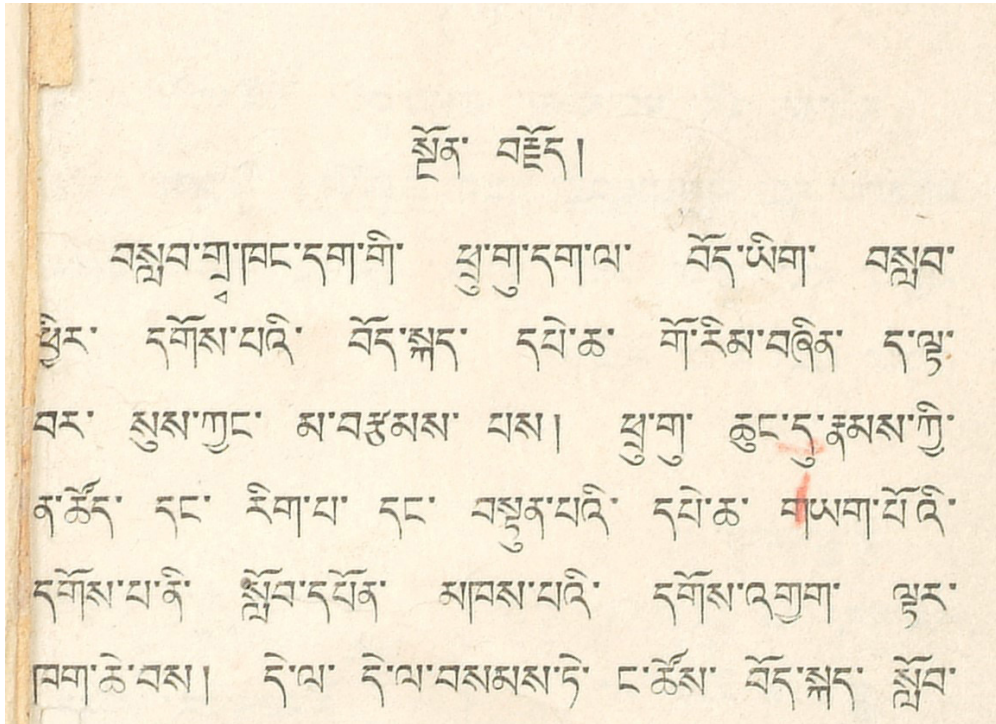 སྔོན་ བརྗོད།
བསླབ་གྲྭ་ཁང་དག་གི་ ཕྲུ་གུ་དག་ལ་ བོད་ཡིག་ བསླབ་
ཕྱིར་ དགོས་པའི་ བོད་སྐད་ དཔེ་ཆ་ གོ་རིམ་བཞིན་ ད་ལྟ་
བར་ སུས་ཀྱང་ མ་བརྩམས་ པས། ཕྲུ་གུ་ ཆུང་དུ་རྣམས་ཀྱི་
ན་ཚོད་ དང་ རིག་པ་ དང་ བསྟུན་པའི་ དཔེ་ཆ་ གཡག་པོ་འི་
དགོས་པ་ནི་ སློབ་དཔོན་ མཁས་པའི་ དགོས་འགྱག་ ལྟར་
ཁག་ཆེ་བས། དེ་ལ་ དེ་ལ་བསམས་ཏེ་ ང་ཚོས་ བོད་སྐད་ སློབ་